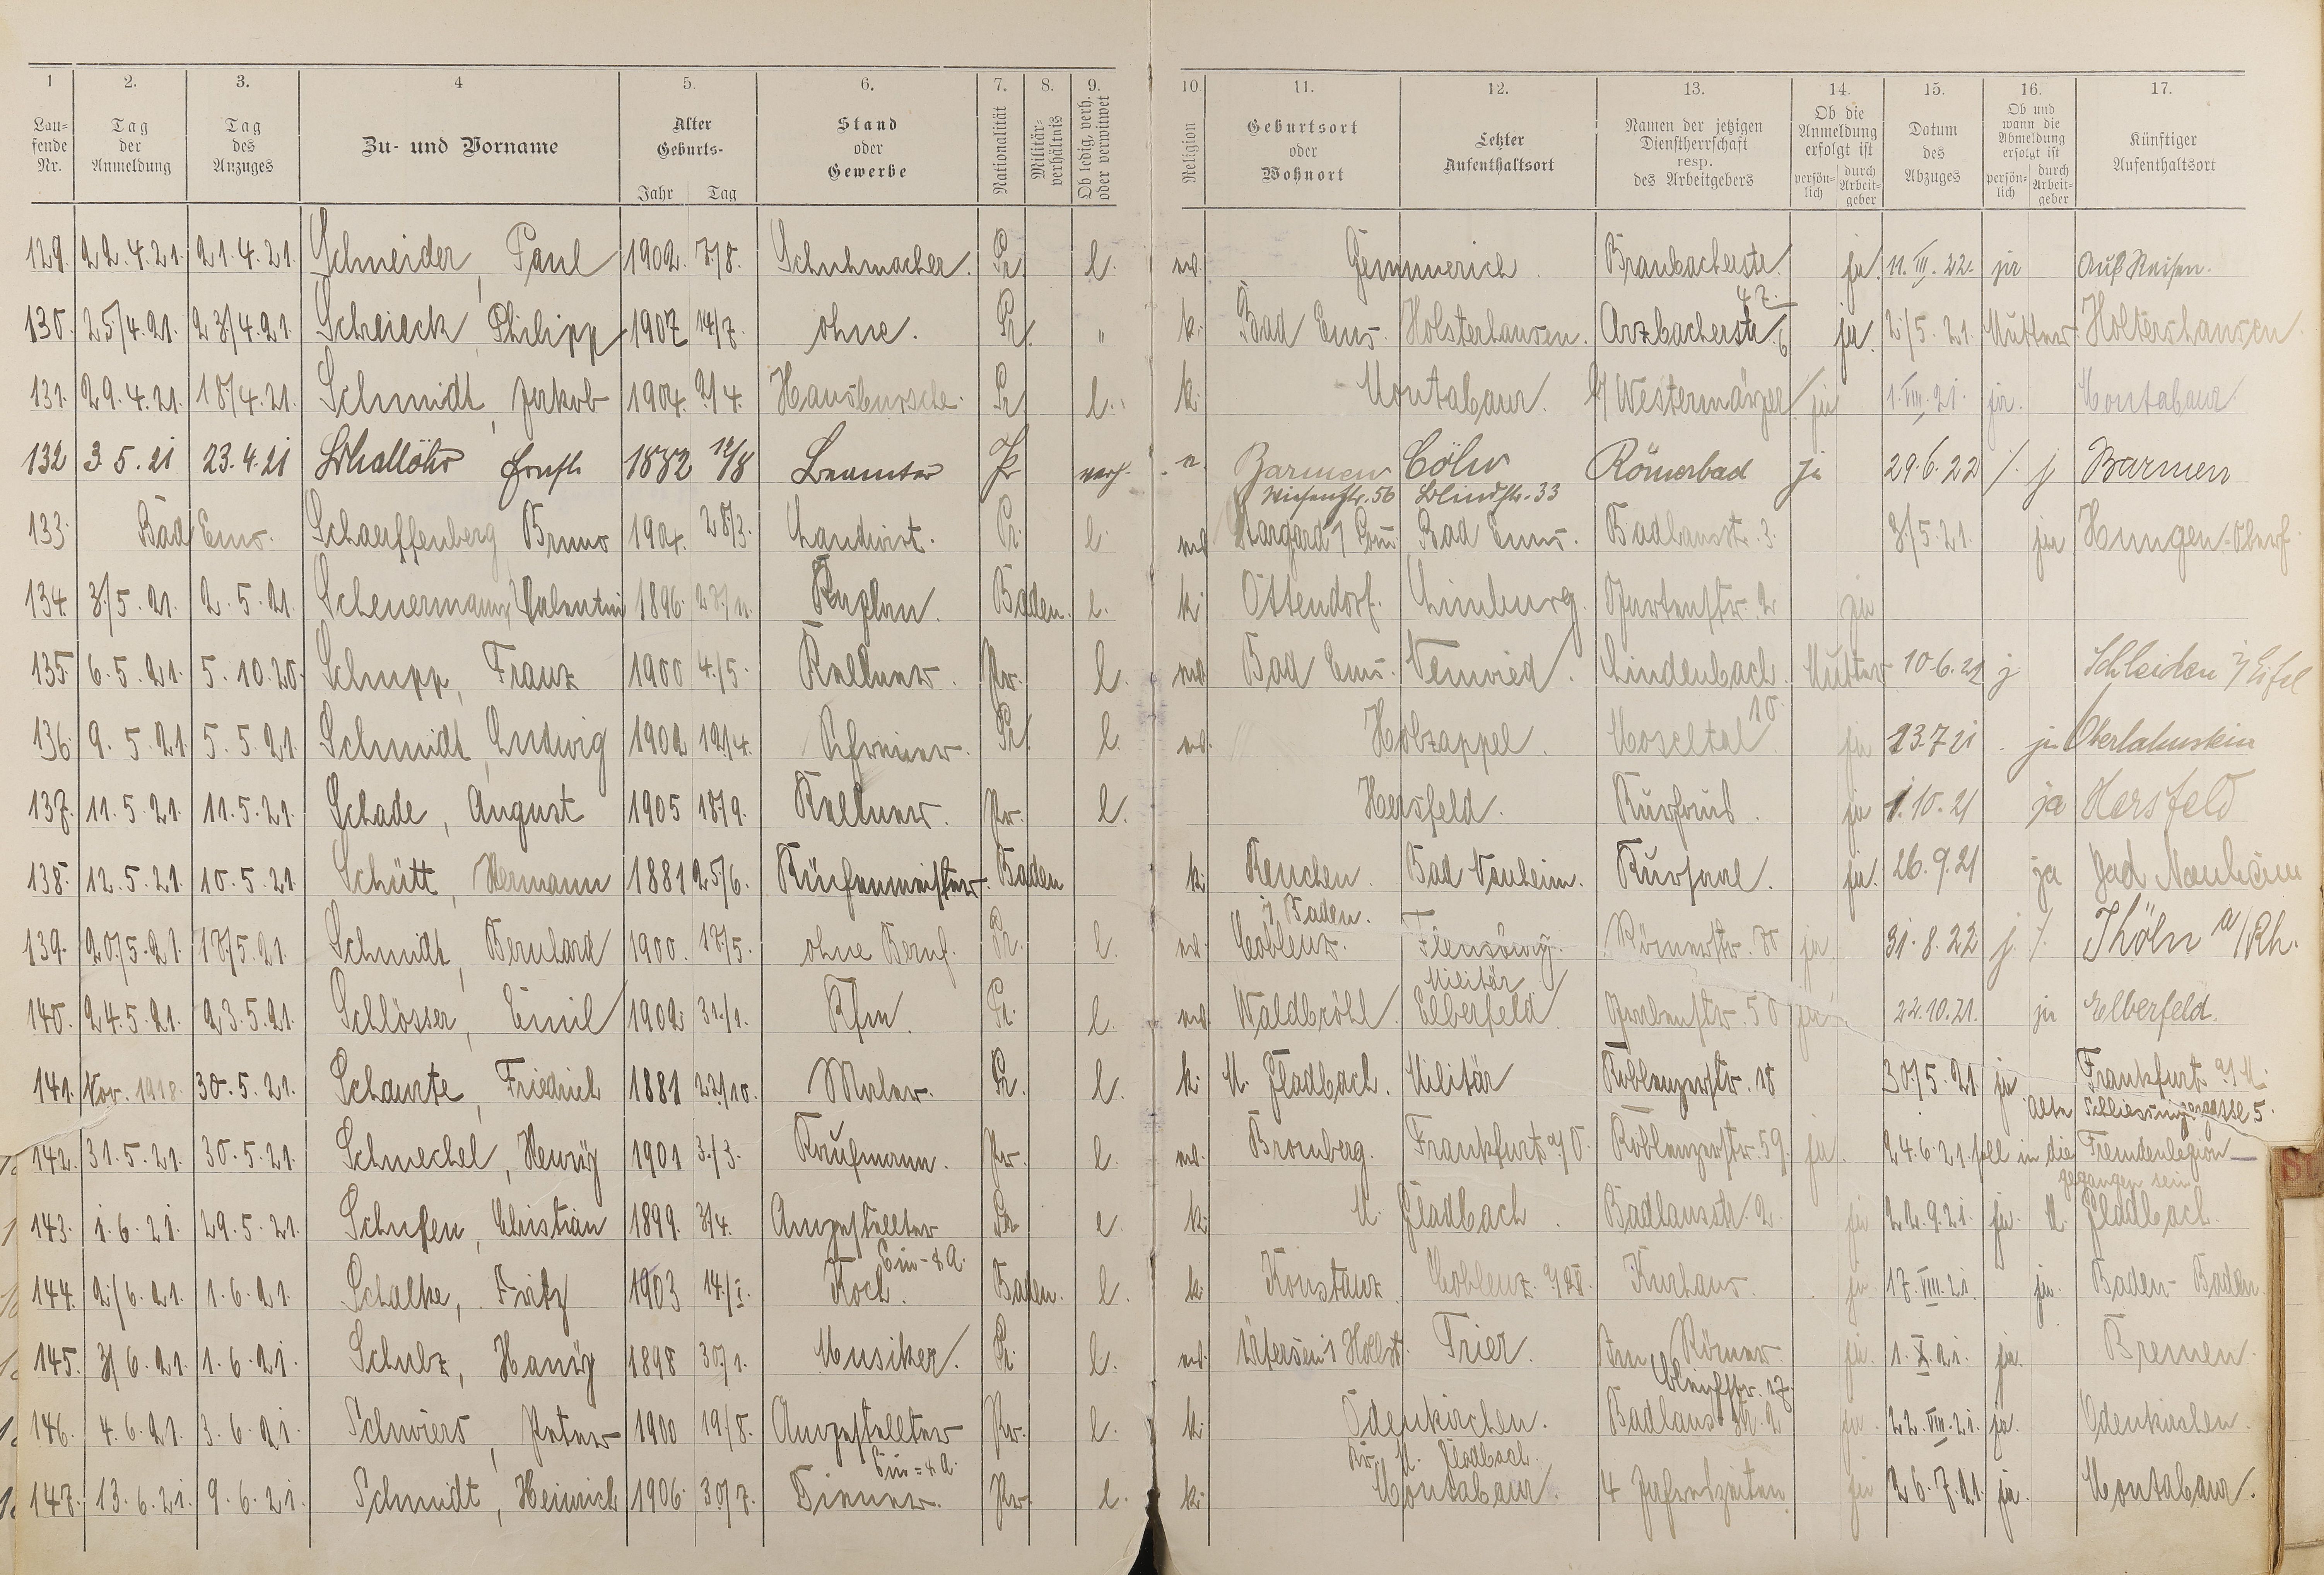 1 2. 3. 4 5. 6. 7. 8. 9. 10 11. 12. 13. 14. 15. 16. 17.
Lau-
fende
Nr.
Tag
der
Anmeldung
Tag
des
Anzuges
Zu- und Vorname
Alter
Geburts-
Jahr Tag
Stand
oder
Gewerbe
Nationalität
Militär-
verhältnis
Ob ledig, verh.
oder verwitwet
Religion
Geburtsort
oder
Wohnort
Letzter
Aufenthaltsort
Namen der jetzigen
Dienstherrschaft
resp.
des Arbeitgebers
Ob die
Anmeldung
erfolgt ist
persön-
lich
durch
Arbeit-
geber
Datum
des
Abzuges
Ob und
wann die
Abmeldung
erfolgt ist
persön-
lich
durch
Arbeit-
geber
Künftiger
Aufenthaltsort
129. 22.4.21. 21.4.21. Schneider, Paul 1902. 7/8. Schuhmacher. Pr. l. Gemmerich. Braubacherstr. ja. 11.III.22. ja Auf Reisen.
42.
130. 25/4.21. 23/4.21. Philipp 1907 14/7. ohne. Pr. " k. Bad Ems. Holsterhausen. Arzbacherstr. 6 ja. 2/5.21. Mutter. Holtershausen
131. 29.4.21. 18/4.21. Schmidt, Jakob 1904. 2/4. Hausbursche. Pr. l. k. Montabaur. ja 1.VIII.21. ja. Montabaur
132 3.5.21 23.4.21 Ernst 1882 12/8 Beamter Pr verh. Barmen Cöln Römerbad ja 29.6.22 /. j Barmen
Wiesenstr. 56 Blindstr. 33
133. Bad Ems. Schaeffenberg Bruno 1904. 28/3. Landwirt. Pr. l. Stargard Bad Ems. Badhausstr. 3. 3/5.21. ja Hungen-Oberh.
134. 3/5.21. 2.5.21. Scheuermann, Valentin 1896. 27/11. Kaplan. Baden. l. k. Ottendorf. Limburg. Gartenstr. 2 ja
135. 6.5.21. 5.10.20. Schupp, Franz 1900 4/5. Kellner. Pr. l. Bad Ems. Neuwied. Lindenbach. Mutter 10.6.21 j Schleiden i/ Eifel
10.
136. 9.5.21. 5.5.21. Schmidt, Ludwig 1902 12/4. Schreiner. Pr. l. Holzappel. Moseltal ja 23.7.21 . ja Oberlahnstein
137. 11.5.21. 11.5.21. Schade, August 1905 18/9. Kellner. Pr. l. Hersfeld. Kurhaus. ja 1.10.21 ja Hersfeld
138. 12.5.21. 10.5.21. Schütt, Hermann 1881 25/6. Küchenmeister. Baden k. Renchen. Bad Nauheim. Kursaal. ja. 26.9.21 ja Bad Nauheim
i. Baden.
139. 20/5.21. 18/5.21. Schmidt, Bernhard 1900. 18/5. ohne Beruf. Pr. l. Coblenz. Flensburg. Römerstr. ja. 31.8.22 j. /. Köln a/Rh.
Militär
140. 24.5.21. 23.5.21. Schlösser, Emil 1902. 31/1. Kfm. Pr. l. Waldbröhl. Elberfeld Grabenstr. 50 ja 22.10.21. ja Elberfeld.
141. Nov. 1918. 30.5.21. Schaurte, Friedrich 1881 22/10. Maler. Pr. l. k. M. Gladbach. Militär Koblenzerstr. 18 30/5.21. ja Frankfurt a/M.
Alte Schlesingergasse 5.
142. 31.5.21. 30.5.21. Schmechel, Henry 1901 3/3. Kaufmann. Pr. l. Bromberg. Frankfurt a/O. Koblenzerstr. 59. ja. 24.6.21. soll in die Fremdenlegion
gegangen sein
143. 1.6.21. 29.5.21. Schufen, Christian 1899. 3/4. Angestellter Pr l k. M. Gladbach. Badhausstr. 2. ja 22.9.21. ja. M. Gladbach.
144. 2/6.21. 1.6.21. Schalke, Fritz 1903 14/I. Koch. Baden. l. k. Konstanz Coblenz Kurhaus. ja. 17.VIII.21. ja. Baden-Baden.
145. 3/6.21. 1.6.21. Schulz, Hansy 1898 30/1. Musiker. Pr. l. Trier. Am Römer ja. 1.X.21. ja. Bremen.
146. 4.6.21. 3.6.21. Schwiers, Peter 1900 19/8. Angestellter Pr. l. k. Odenkirchen. Badhausstr. 2 ja 22.VIII.21. ja. Odenkirchen.
Kr. M. Gladbach.
147. 13.6.21. 9.6.21. Schmidt, Heinrich 1906. 30/7. Diener. Pr. l. k. Montabaur. 4 Jahreszeiten. ja 26.7.21. ja. Montabaur.